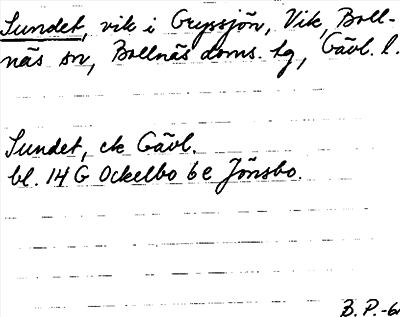 Sundet, vik i Gryssjön, Vik, Boll-
näs sn, Bollnäs doms. tg, Gävl. l.
Sundet, ek Gävl.
bl. 14 G Ockelbo 6 e Jönsbo.
B. P.-6